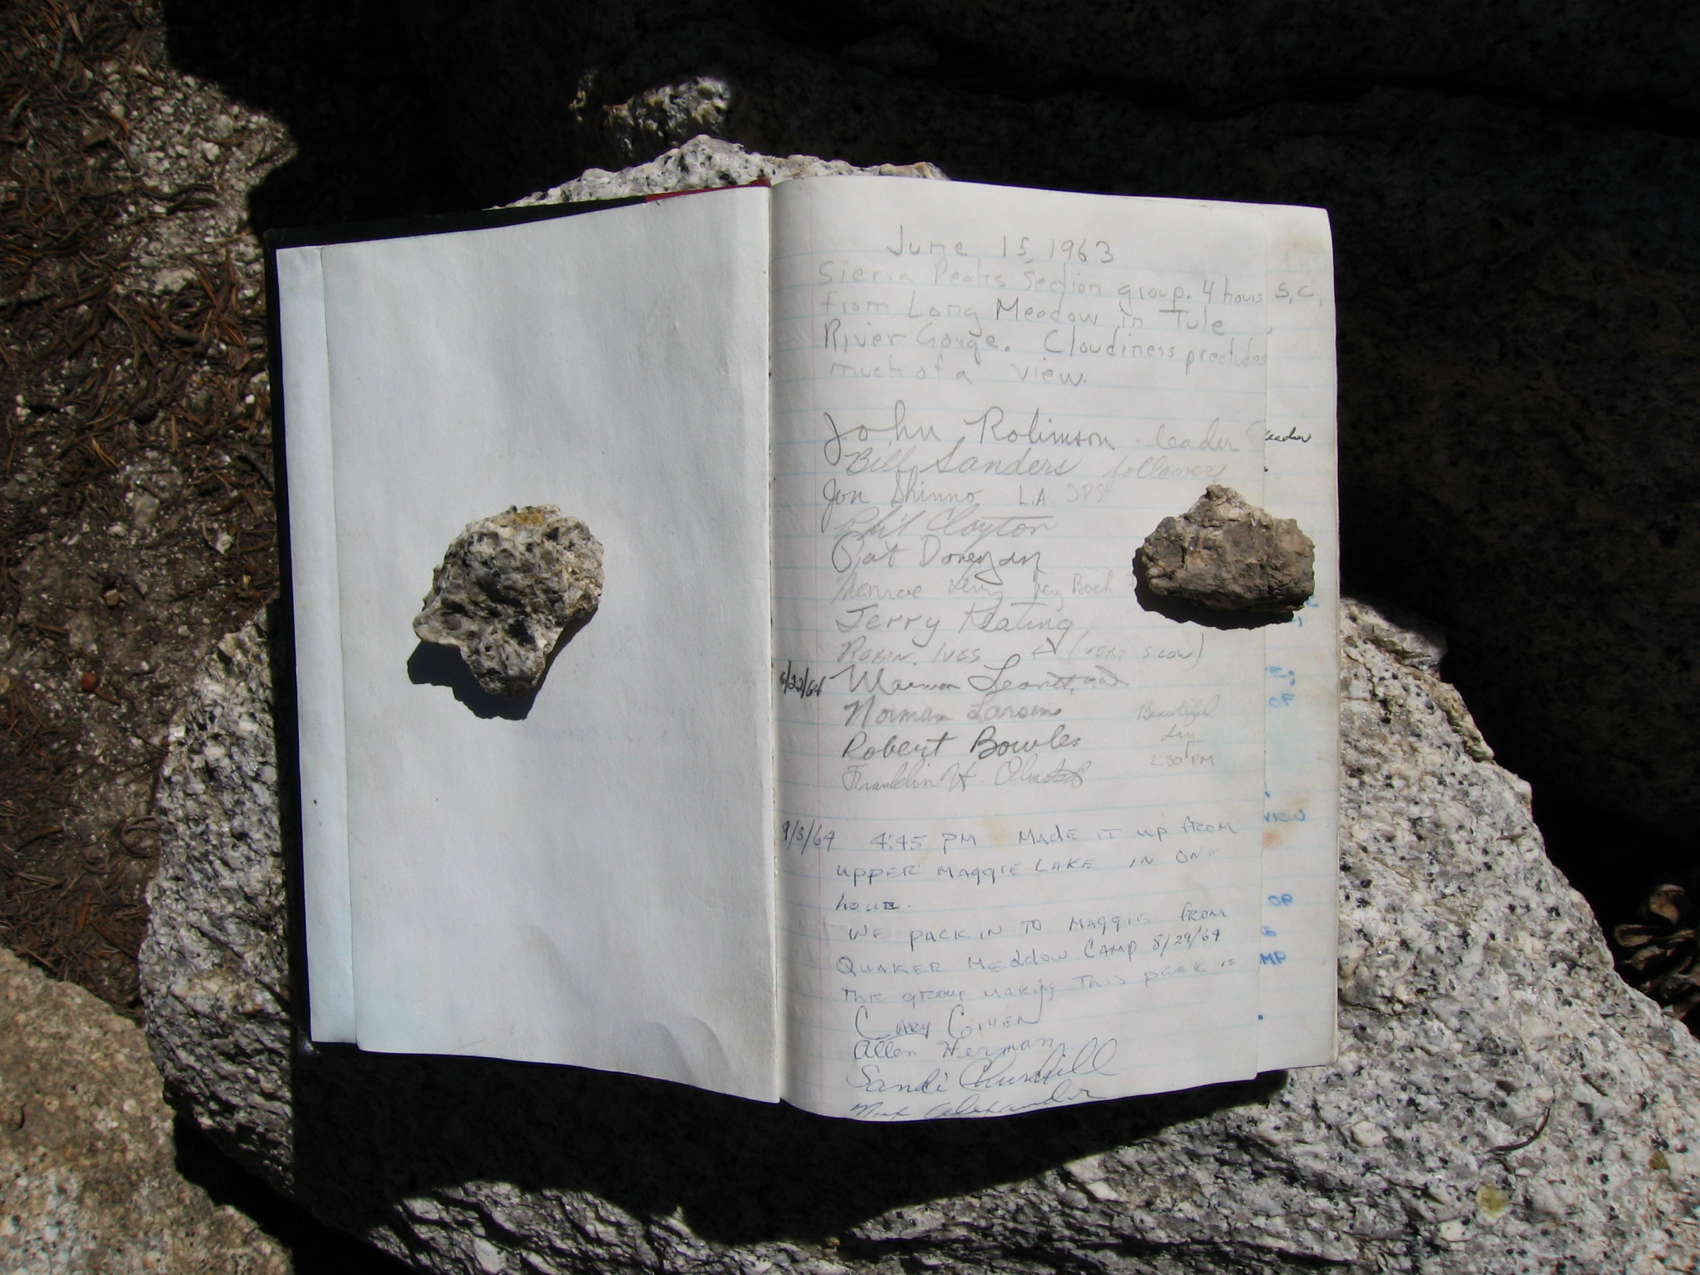 June 15, 1963
Sierra Peaks Section group. 4 hours
from Long Meadow in Tule
River Gorge. Cloudiness precludes
much of a view.
John Robinson - leader
Bill Sanders follower
Jon Shinno L.A. SPS
Phil Clayton
Pat Donegan
Monroe Levy Jay Bach
Jerry Keating
Robin Ives (very slow)
6/22/64 Warren
Norman Larsen Beautiful
Robert Bowles day
Franklin H. Olmsted 2:30 PM
9/3/64 4:45 PM MADE IT UP FROM
UPPER MAGGIE LAKE IN ONE
hour.
WE PACK IN TO MAGGIE FROM
QUAKER MEDDOW CAMP 8/29/64
THE GROUP MAKING THIS PEAK IS
Cary
Allen Herman
Sandi Churchill
Max Alexander
S.C.
leader
VIEW